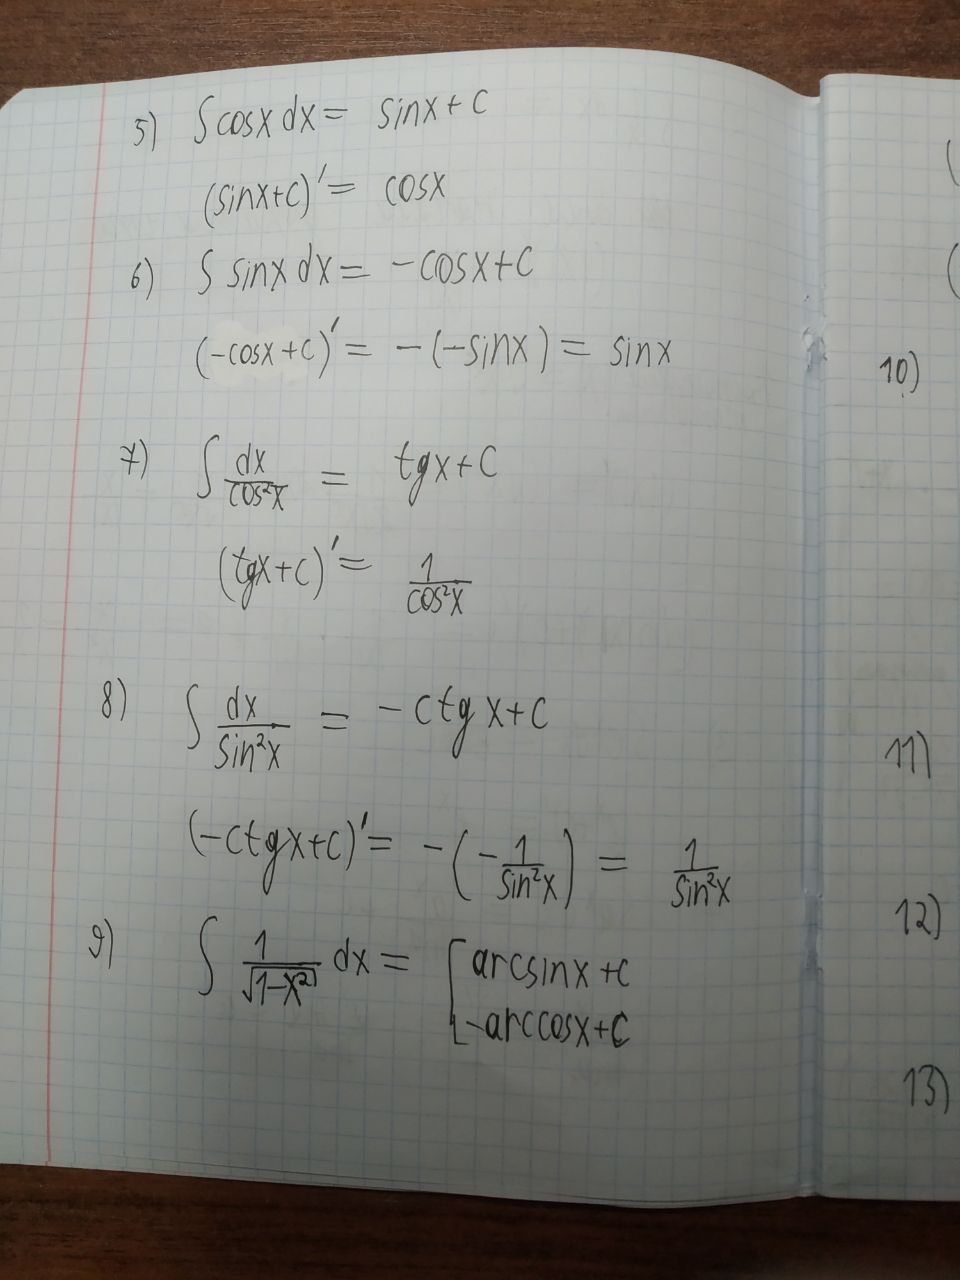 5) ∫cosx dx = sinx+c
(sinx+c)' = cosx
6) ∫ sinx dx = -cosx+c
(-cosx+c)' = -(-sinx) = sinx
7) ∫ dx/cos²x = tgx+c
(tgx+c)' = 1/cos²x
8) ∫ dx/sin²x = -ctgx+c
(-ctgx+c)' = -(-1/sin²x) = 1/sin²x
9) ∫ 1/√(1-x²) dx = [arcsinx+c
-arccosx+c
(
(
10)
11)
12)
13)